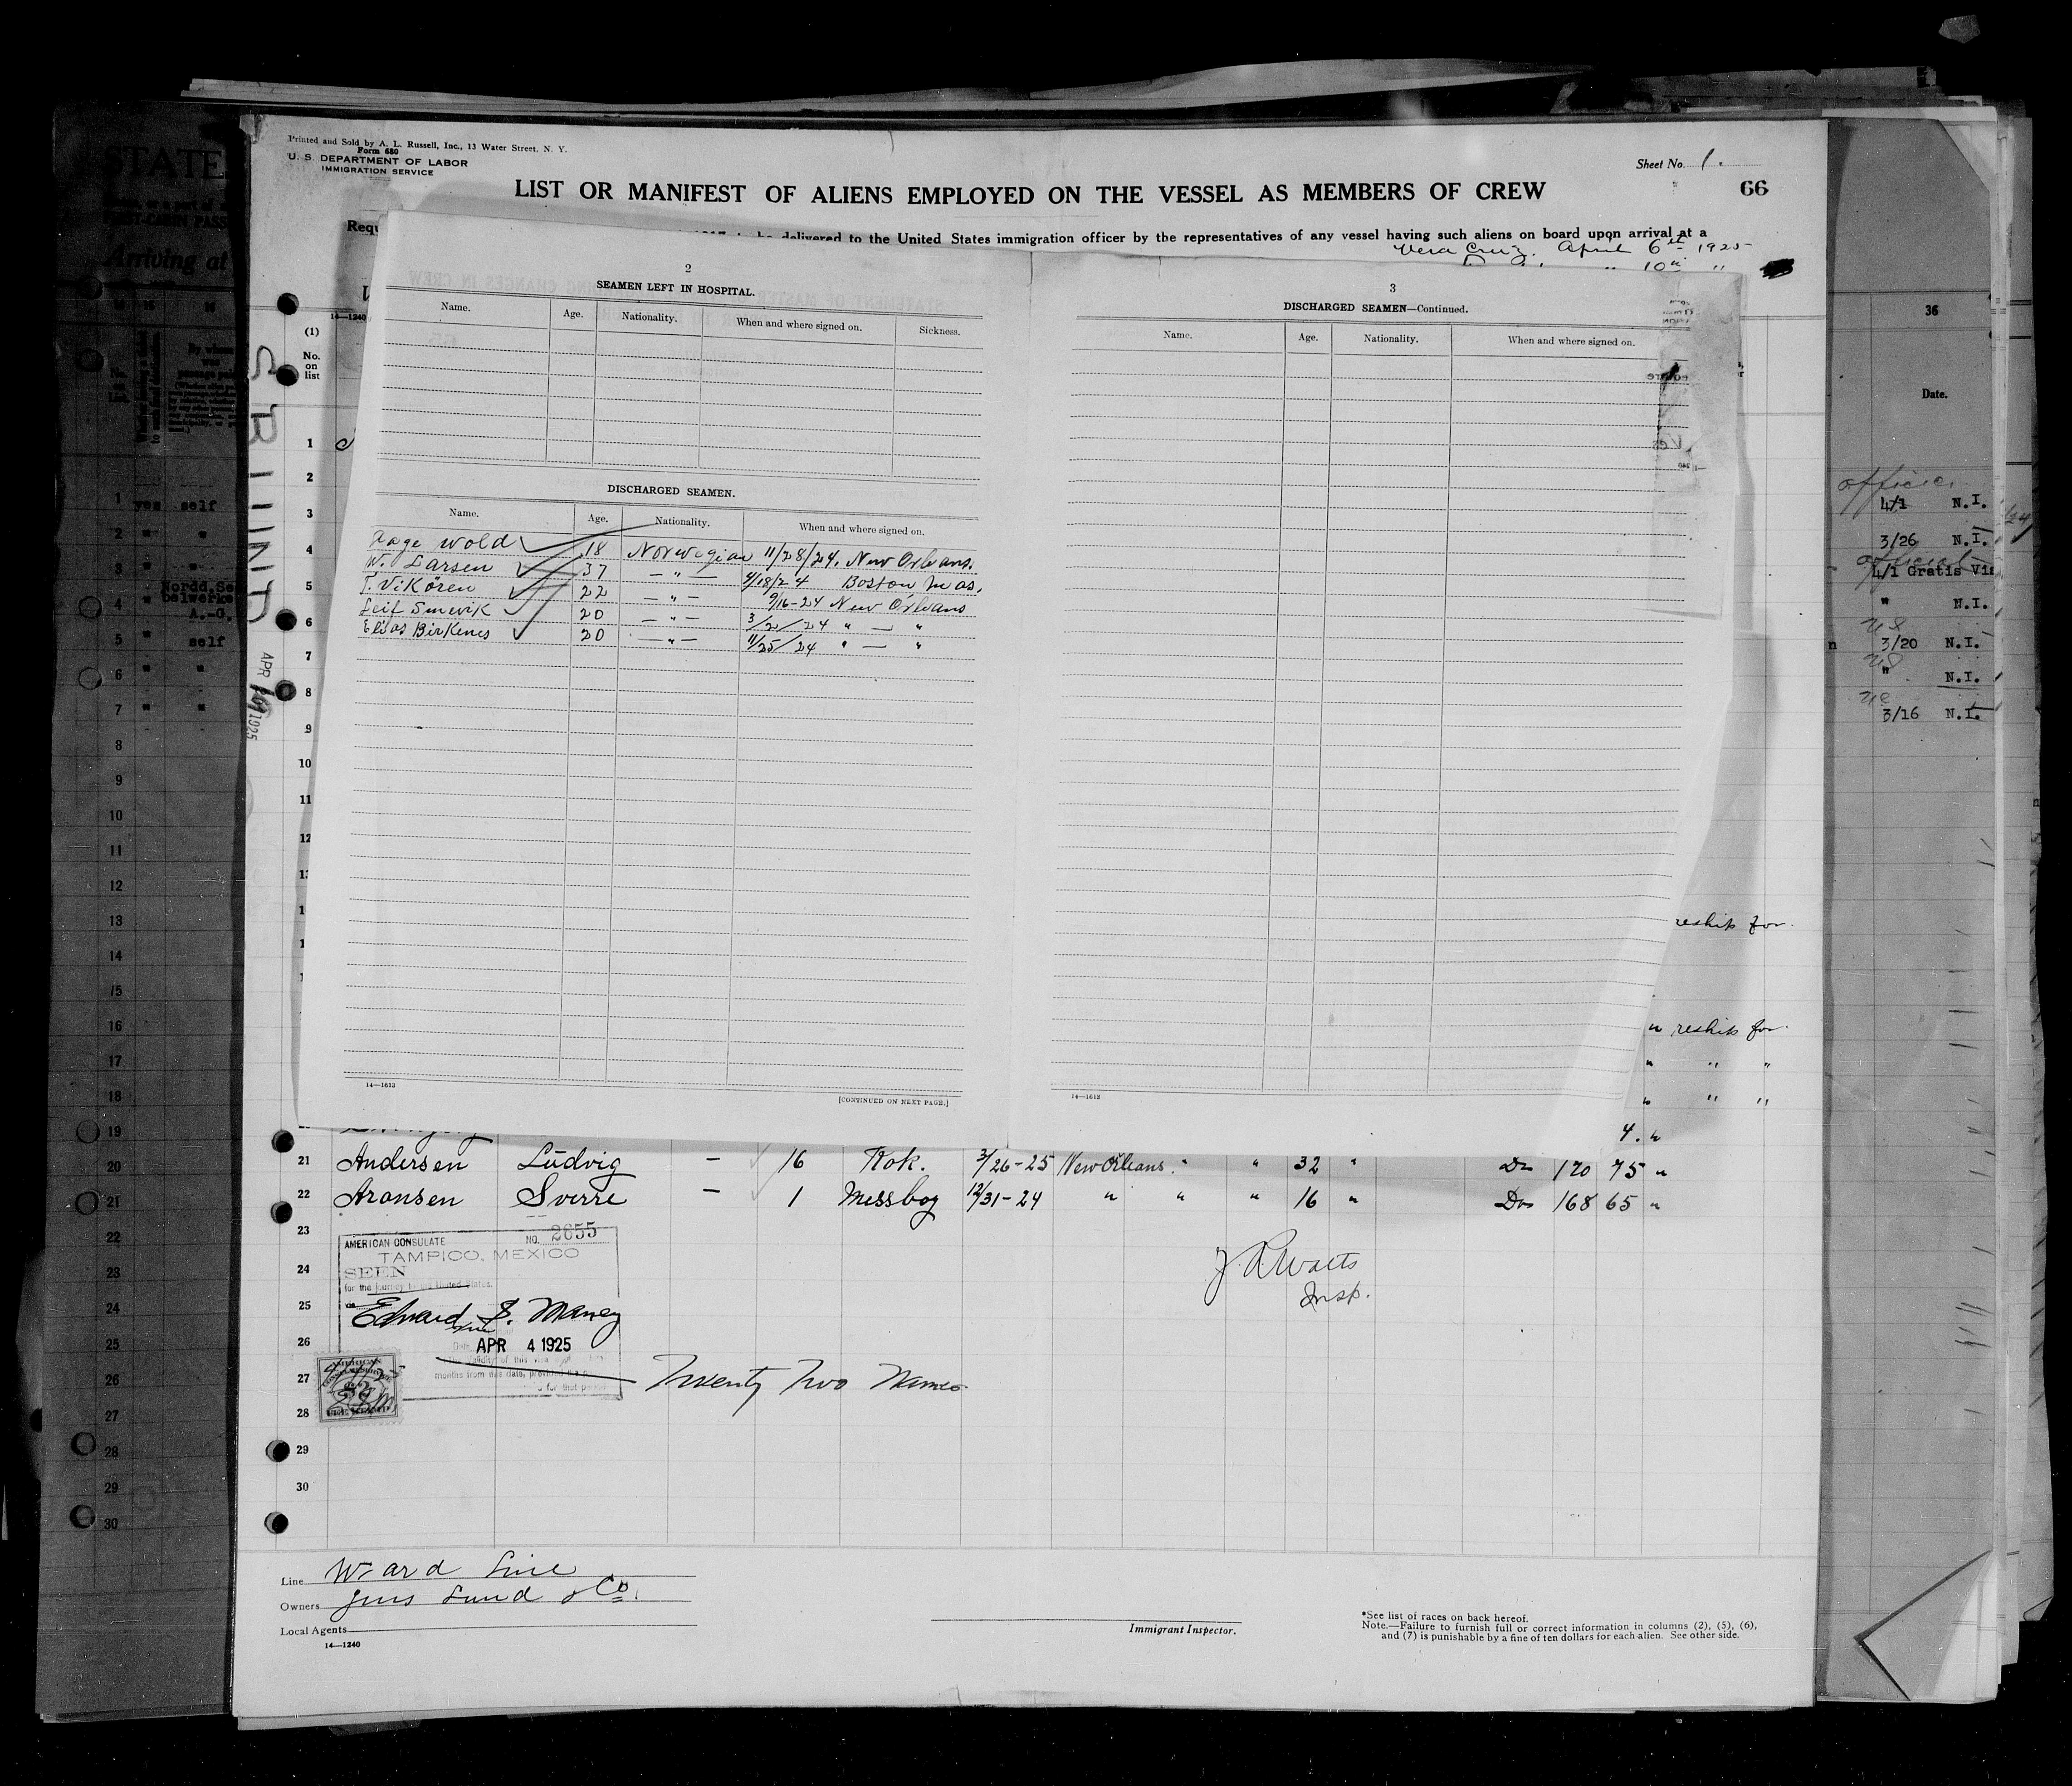 Printed and Sold by A. L. Russell, Inc., 13 Water Street, N. Y.
Form 680
U. S. DEPARTMENT OF LABOR
IMMIGRATION SERVICE
Sheet No. 1.
LIST OR MANIFEST OF ALIENS EMPLOYED ON THE VESSEL AS MEMBERS OF CREW
66
delivered to the United States immigration officer by the representatives of any vessel having such aliens on board upon arrival at a
Vera Cruz. April 6th 1925
" 10th "
14—1240
(1)
No. on list
2
SEAMEN LEFT IN HOSPITAL.
Name. Age. Nationality. When and where signed on. Sickness.
DISCHARGED SEAMEN.
Name. Age. Nationality. When and where signed on.
Aage Wold 18 Norwegian 11/28/24. New Orleans.
W. Larsen 37 — " — 4/18/24 Boston, Mas.
T. Vikören 22 — " — 9/16-24 New Orleans
Leif Smevik 20 — " — 3/2/24 " — "
Elias Birkenes 20 — " — 11/25/24 " — "
14—1613
[CONTINUED ON NEXT PAGE.]
3
DISCHARGED SEAMEN—Continued.
Name. Age. Nationality. When and where signed on.
14—1613
reship for
" reship for
" " "
" " "
4. "
21 Andersen Ludvig — 16 Kok. 3/26-25 New Orleans. " " 32 " Do 170 75 "
22 Aronsen Sverre — 1 Messboy 12/31-24 " " " 16 " Do 168 65 "
23
24
25
26
27
28
29
30
AMERICAN CONSULATE NO. 2655
TAMPICO, MEXICO
SEEN
for the journey to the United States.
Edward S. Maney
APR 4 1925
months from this date, provided
for that period
Twenty Two Names
J. R. Watts
Insp.
Line Ward Line
Owners Jens Lund & Co.
Local Agents
14—1240
Immigrant Inspector.
*See list of races on back hereof.
Note.—Failure to furnish full or correct information in columns (2), (5), (6),
and (7) is punishable by a fine of ten dollars for each alien. See other side.
STATE
Arriving at
1 yes self
2 " "
3 " "
Nordd.
4 " A.-G.
5 " self
6 " "
7 " "
8
9
10
11
12
13
14
15
16
17
18
19
20
21
22
23
24
25
26
27
28
29
30
APR 1925
36
Date.
4/1 N.I.
3/26 N.I.
4/1 Gratis
" N.I.
3/20 N.I.
" N.I.
3/16 N.I.